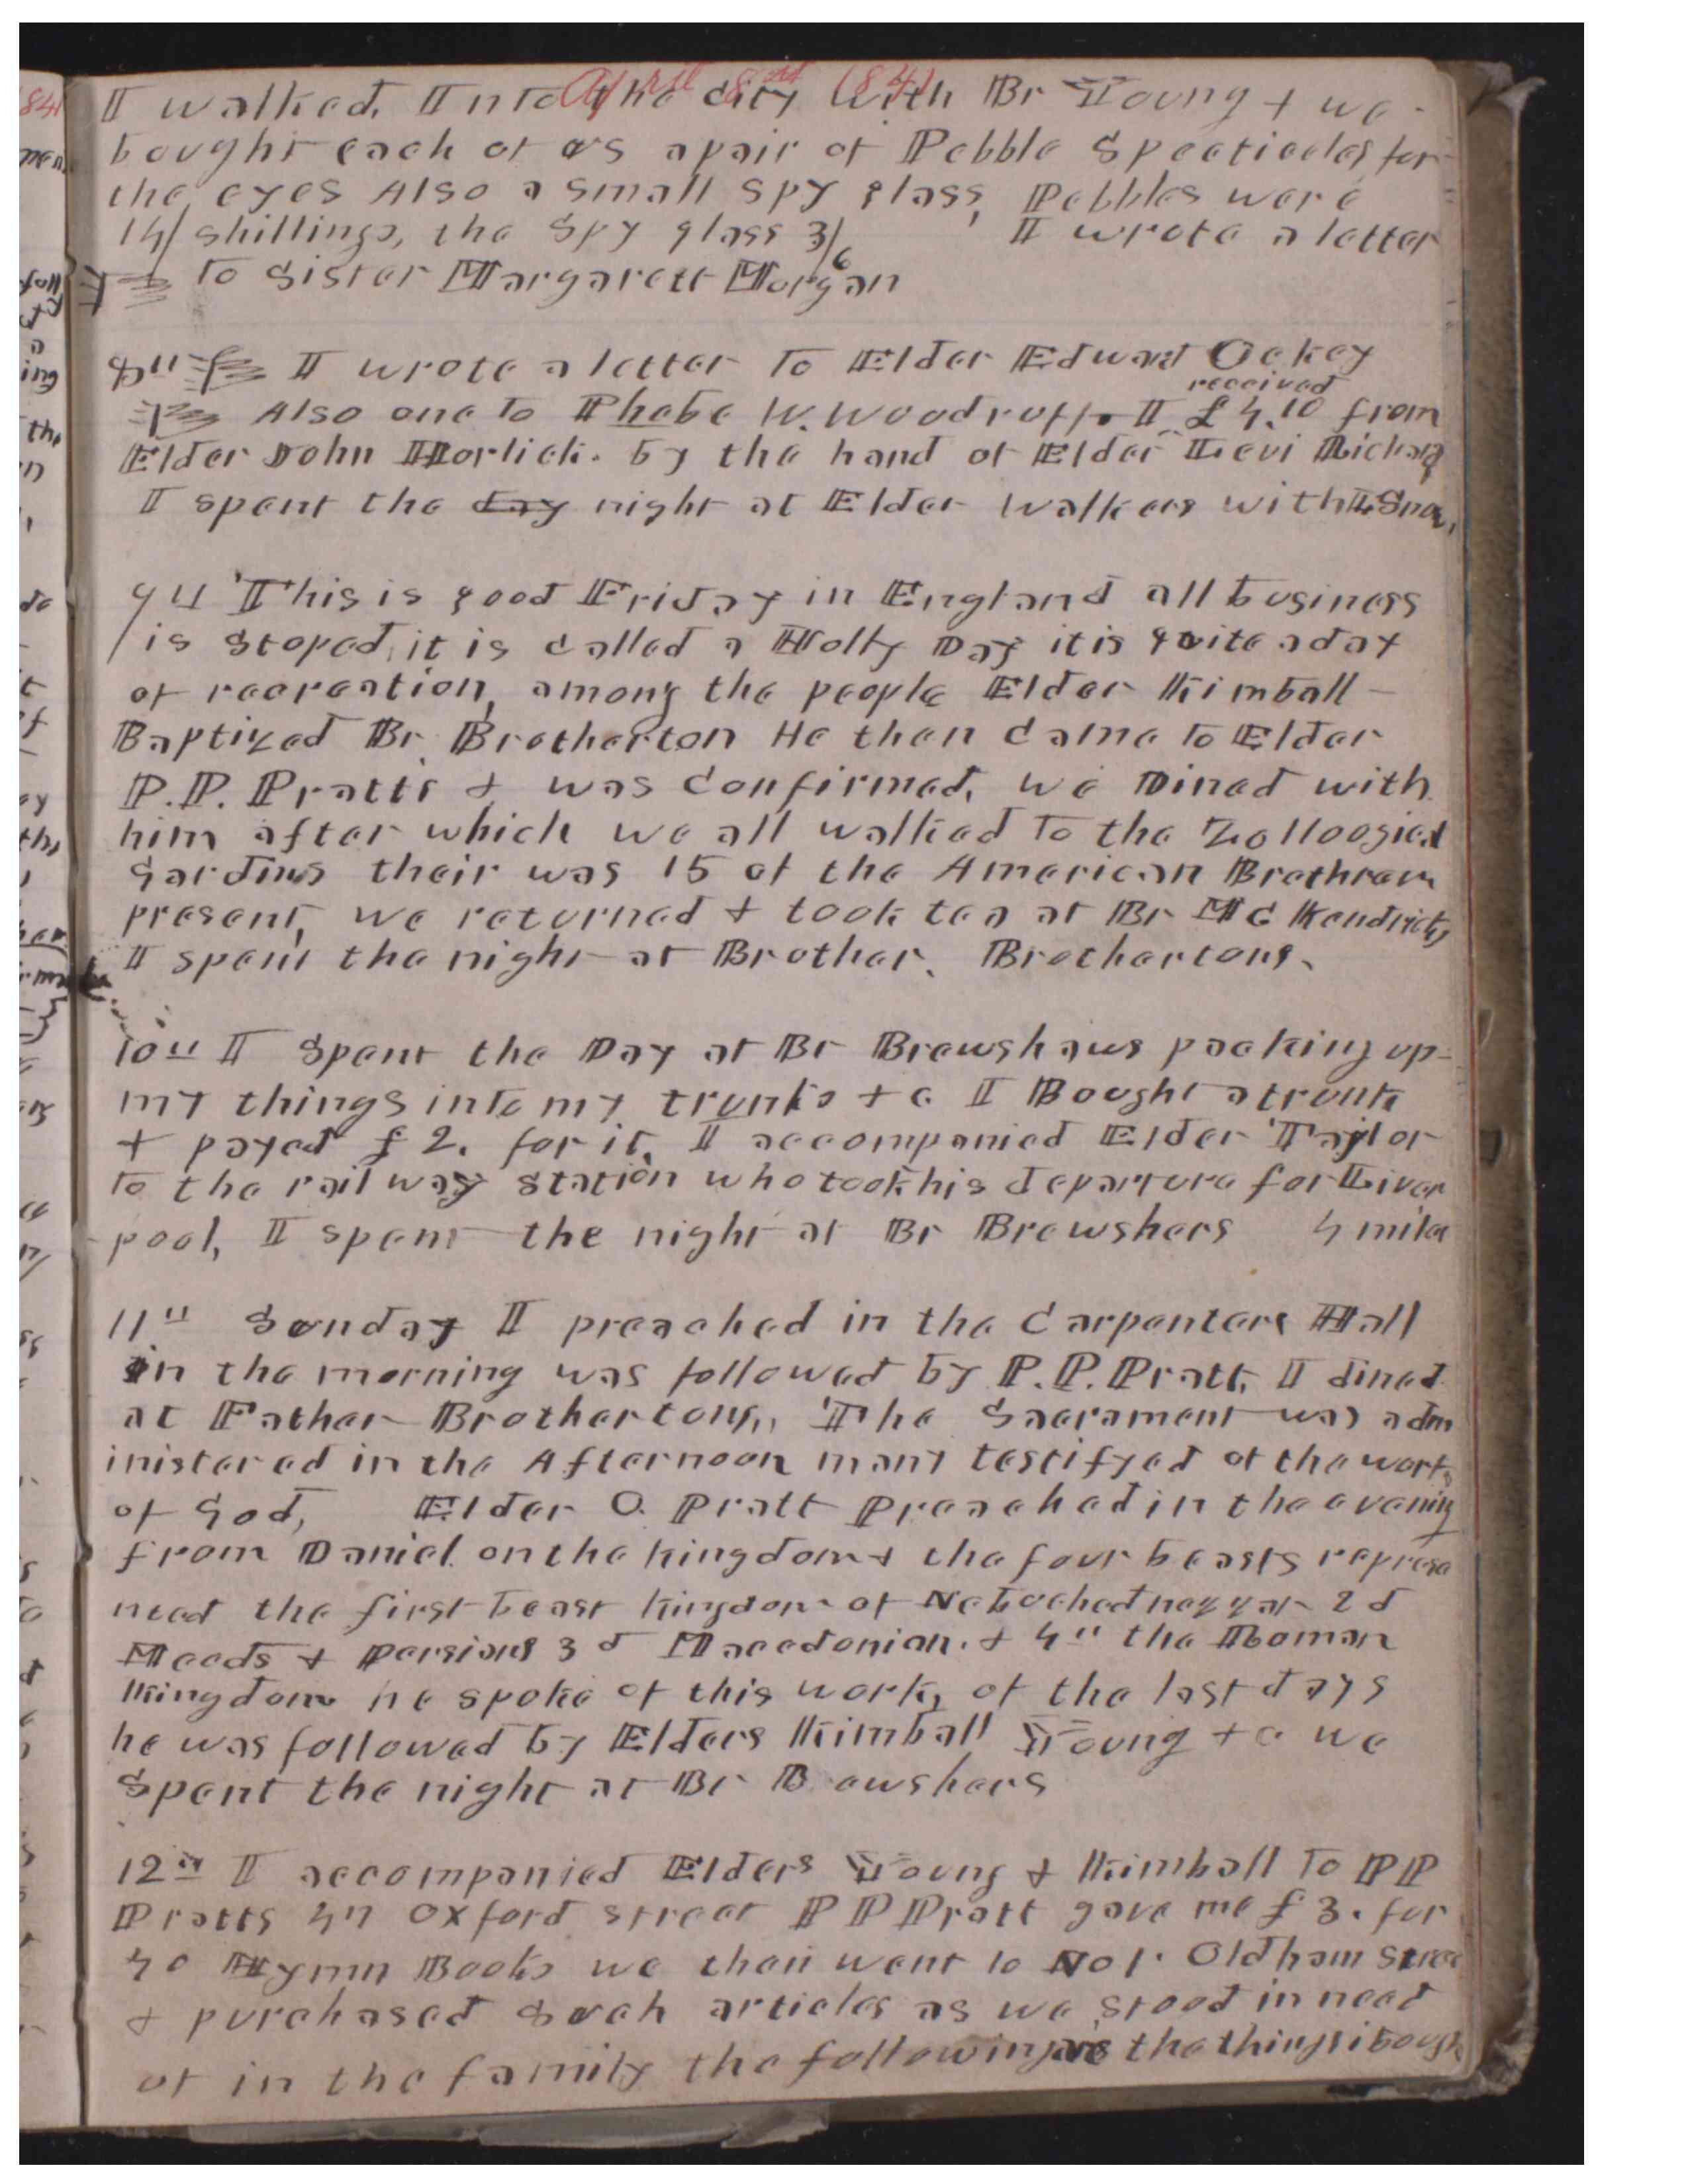 April 8th 1841
I walked. Into the city with Br Young & we
bought each of us a pair of Pebble Specticules for
the eyes Also a small spy glass, Pebbles were
14/ shillings, the spy glass 3/6 I wrote a letter
to Sister Margarett Morgan
8th I wrote a letter to Elder Edward Ockey
received
Also one to Phebe W. Woodruff. I £4.10 from
Elder John Horlick. by the hand of Elder Levi Richard
I spent the day night at Elder Walkers with L Snow,
9th This is good Friday in England all business
is stoped, it is called a Holly Day it is quite a day
of recreation, among the people Elder Kimball
Baptized Br. Brotherton He then came to Elder
P.P. Pratts & was confirmed, we Dined with
him after which we all walked to the Zolloogical
Gardins their was 15 of the American Brethren
present, we returned & took tea at Br McKendricks
I spent the night at Brother. Brothertons.
10th I Spent the Day at Br Brewshaws packing up
my things into my trunks &c I Bought a trunk
& payed £2. for it. I accompanied Elder Taylor
to the railway station who took his departure for Liver
pool, I spent the night at Br Brewshers 4 mile
11th Sunday I preached in the Carpenters Hall
in the morning was followed by P.P. Pratt, I dined
at Father Brothertons,, The Sacrament was adm
inistered in the Afternoon many testifyed of the work
of God, Elder O. Pratt Preached in the evening
from Daniel on the kingdom & the four beasts represe
nted the first beast kingdom of Nebuchednezzar 2d
Meeds & Persians 3d Macedonian. & 4th the Roman
Kingdom he spoke of this work, of the last days
he was followed by Elders Kimball Young &c we
Spent the night at Br B ewshers
12th I accompanied Elders Young & Kimball to PP
Pratts 47 Oxford street P P Pratt gave me £3. for
40 Hymn Books we then went to No 1. Oldham Stree
& purchased such articles as we stood in need
of in the family the following are the things i bough